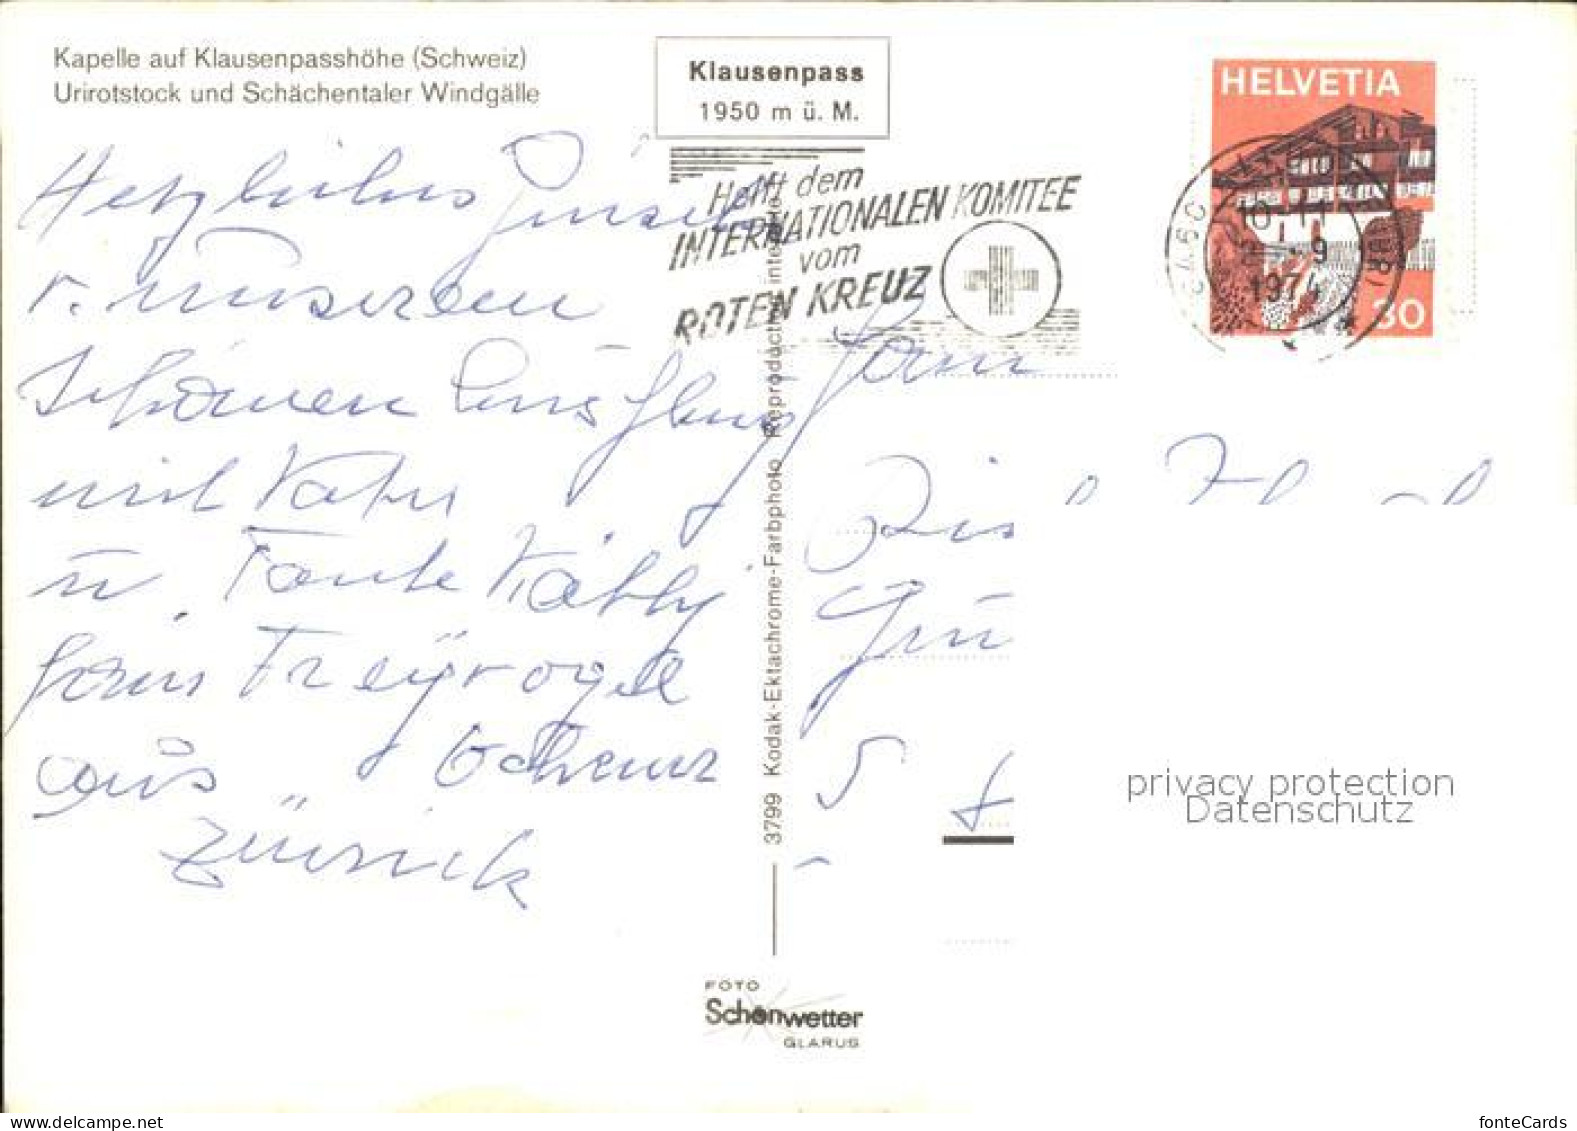 Kapelle auf Klausenpasshöhe (Schweiz)
Urirotstock und Schächentaler Windgälle
Klausenpass
1950 m ü. M.
Helft dem
INTERNATIONALEN KOMITEE
vom
ROTEN KREUZ
HELVETIA
30
10-11
9
1974
v. unserem
schönen Ausflug
mit Vater
u. Tante Käthy
Fam Freyvogel
aus
Zürich
Fam
3799 Kodak-Ektachrome-Farbphoto Reproduction interdite
privacy protection
Datenschutz
FOTO
Schönwetter
GLARUS
www.delcampe.net
fonteCards